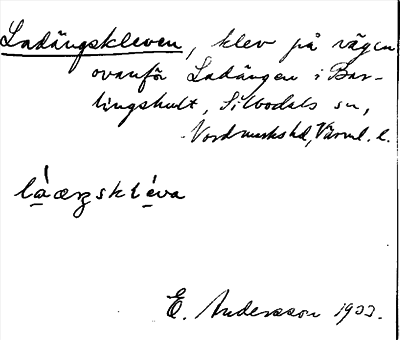 Ladängskleven, klev på vägen
ovanför Ladängen i Bar-
lingshult, Silbodals sn,
Nordmarks hd, Värml. l.
láæŋskléva
E. Andersson 1933.